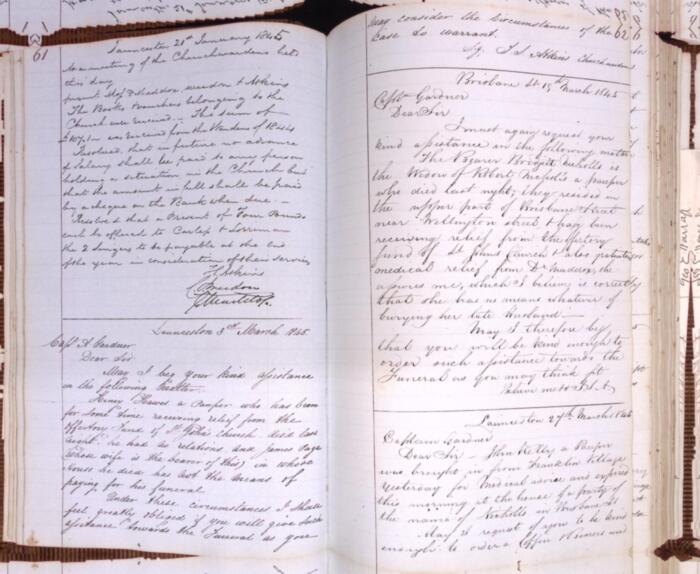 61
Launceston 21st January 1845
At a meeting of the Churchwardens held
this day
present and Atkins
The Books Vouchers belonging to the
Church were received. The sum of
was received from the Wardens of 1844
Resolved, that in future no advance
of Salary shall be paid to any person
holding a situation in the Church but
that the amount in full shall be paid
by a cheque on the Bank when due. —
Resolved that a Present of Four Pounds
each be offered to &
the 2 Singers to be payable at the end
of the year in consideration of their services
Atkins
Launceston 3rd March 1845
Capt A Gardner
Dear Sir
May I beg your kind assistance
in the following Matter.
Henry Hawes a Pauper who has been
for some time receiving relief from the
Offertory Fund of St John's Church died last
night. he had no relations and James Page
(whose wife is the bearer of this) in whose
house he died has not the means of
paying for his funeral
Under these circumstances I shall
feel greatly obliged if you will give such
assistance towards the Funeral as your
62
may consider the Circumstances of the
Case to warrant.
Sg. Atkins Churchwarden
Brisbane St 19th March 1845
Captn Gardner
Dear Sir
I must again request your
kind assistance in the following matter
The Bearer Bridget Nicholls is
the Widow of Robert a pauper
who died last night; they resided in
the upper part of Brisbane Street
near Wellington Street & have been
receiving relief from the Offertory
fund of St Johns Church & also
medical relief from Dr Maddox, she
assures me, which I believe is correctly
that she has no means whatever of
burying her late Husband —
May I therefore beg
that you will be kind enough to
order such assistance towards the
Funeral as you may think fit
Believe me &c
Launceston 27th March 1845
Captain Gardner
Dear Sir — John a Pauper
was brought in from Franklin Village
Yesterday for Medical advice and expired
this morning at the house of a party of
the name of Nicholls in Brisbane St
May I request of you to be kind
enough to order a Coffin and